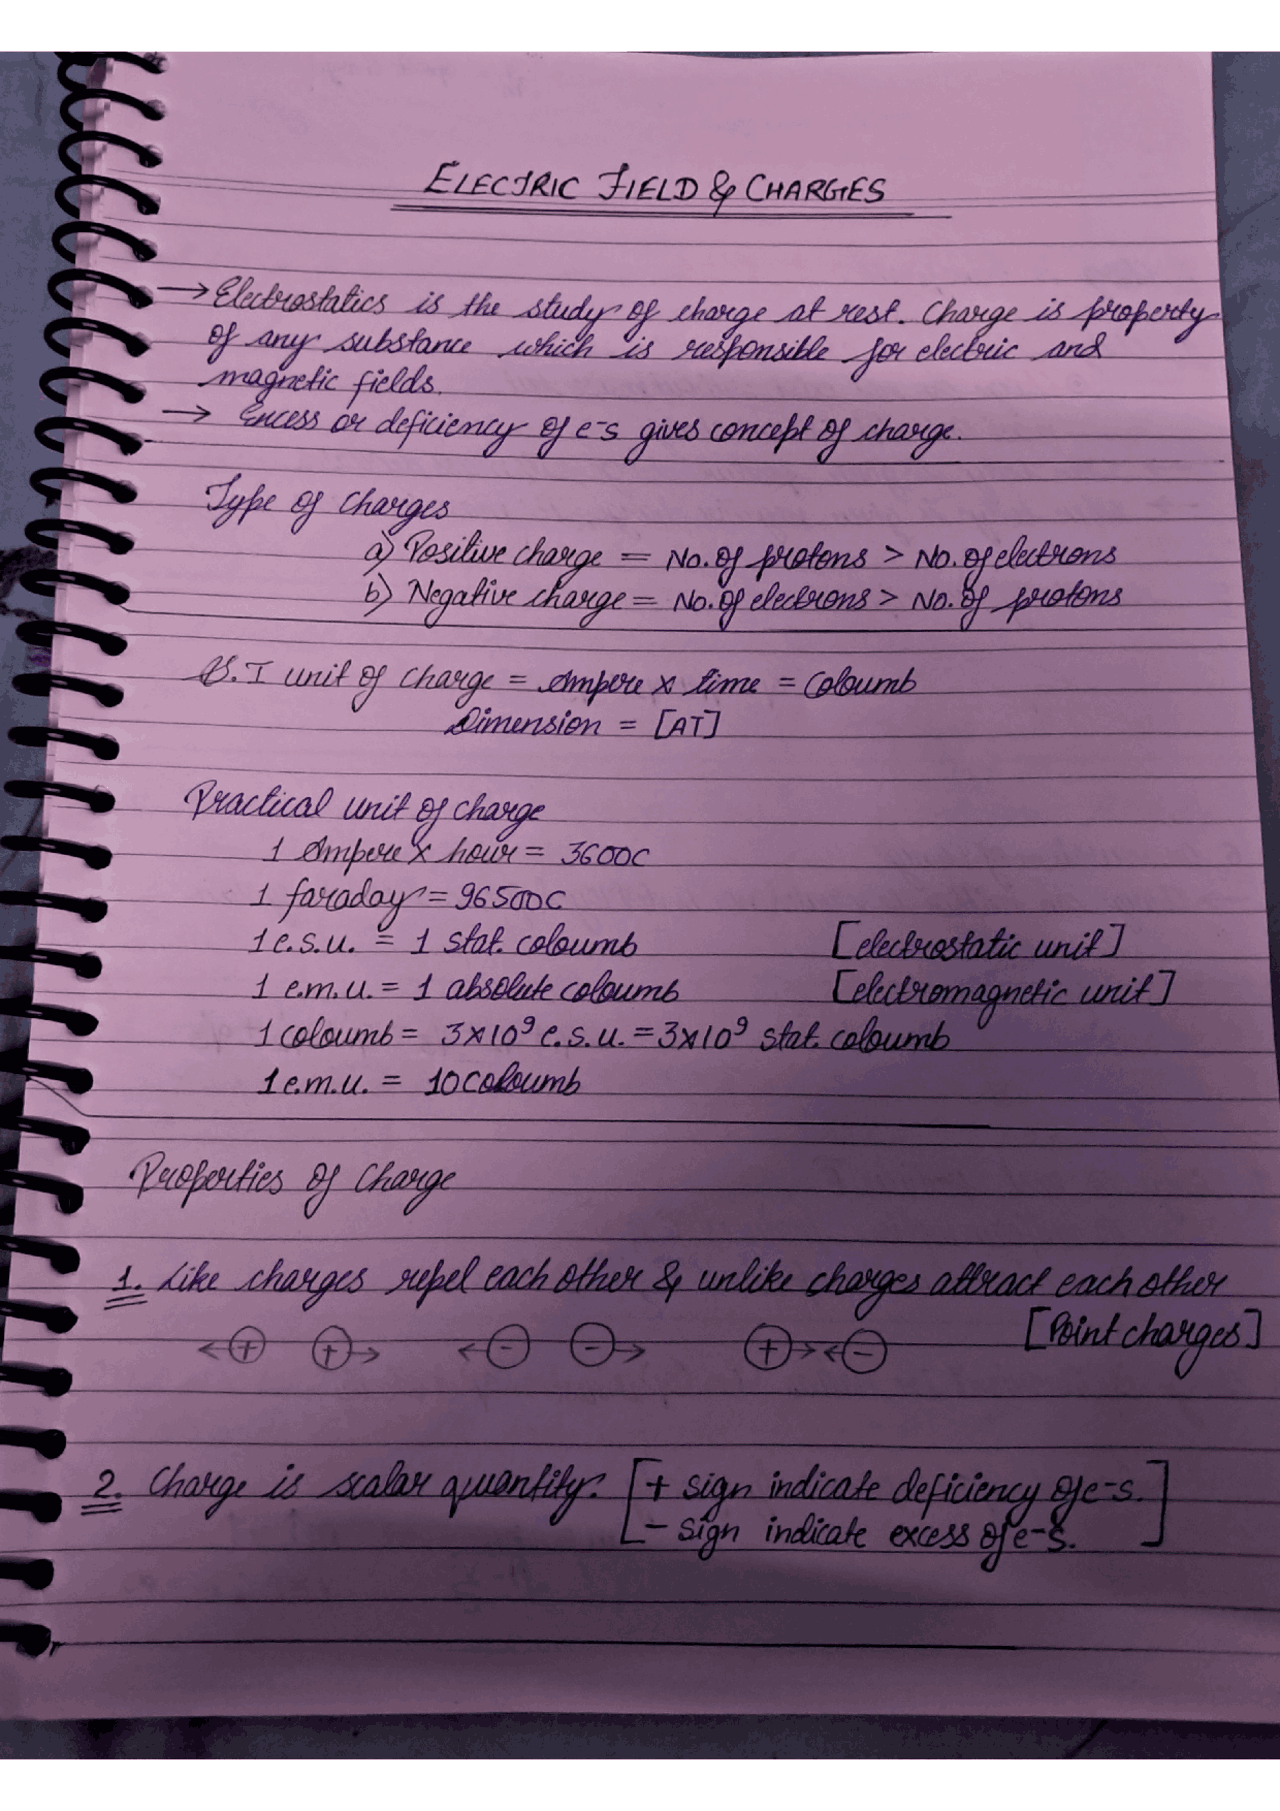 ELECTRIC FIELD & CHARGES
→ Electrostatics is the study of charge at rest. Charge is property
of any substance which is responsible for electric and
magnetic fields.
→ Excess or deficiency of e-s gives concept of charge.
Type of Charges
a) Positive charge = No. of protons > No. of electrons
b) Negative charge = No. of electrons > No. of protons
S.I unit of charge = Ampere x time = Coloumb
Dimension = [AT]
Practical unit of charge
1 Ampere x hour = 3600C
1 faraday = 96500C
1 e.s.u. = 1 stat. coloumb [electrostatic unit]
1 e.m.u. = 1 absolute coloumb [electromagnetic unit]
1 coloumb = 3x10⁹ e.s.u. = 3x10⁹ stat. coloumb
1 e.m.u. = 10 coloumb
Properties of Charge
1. Like charges repel each other & unlike charges attract each other
[Point charges]
←+ +→ ←- -→ +→←-
2. Charge is scalar quantity. [+ sign indicate deficiency of e-s.
- sign indicate excess of e-s.]